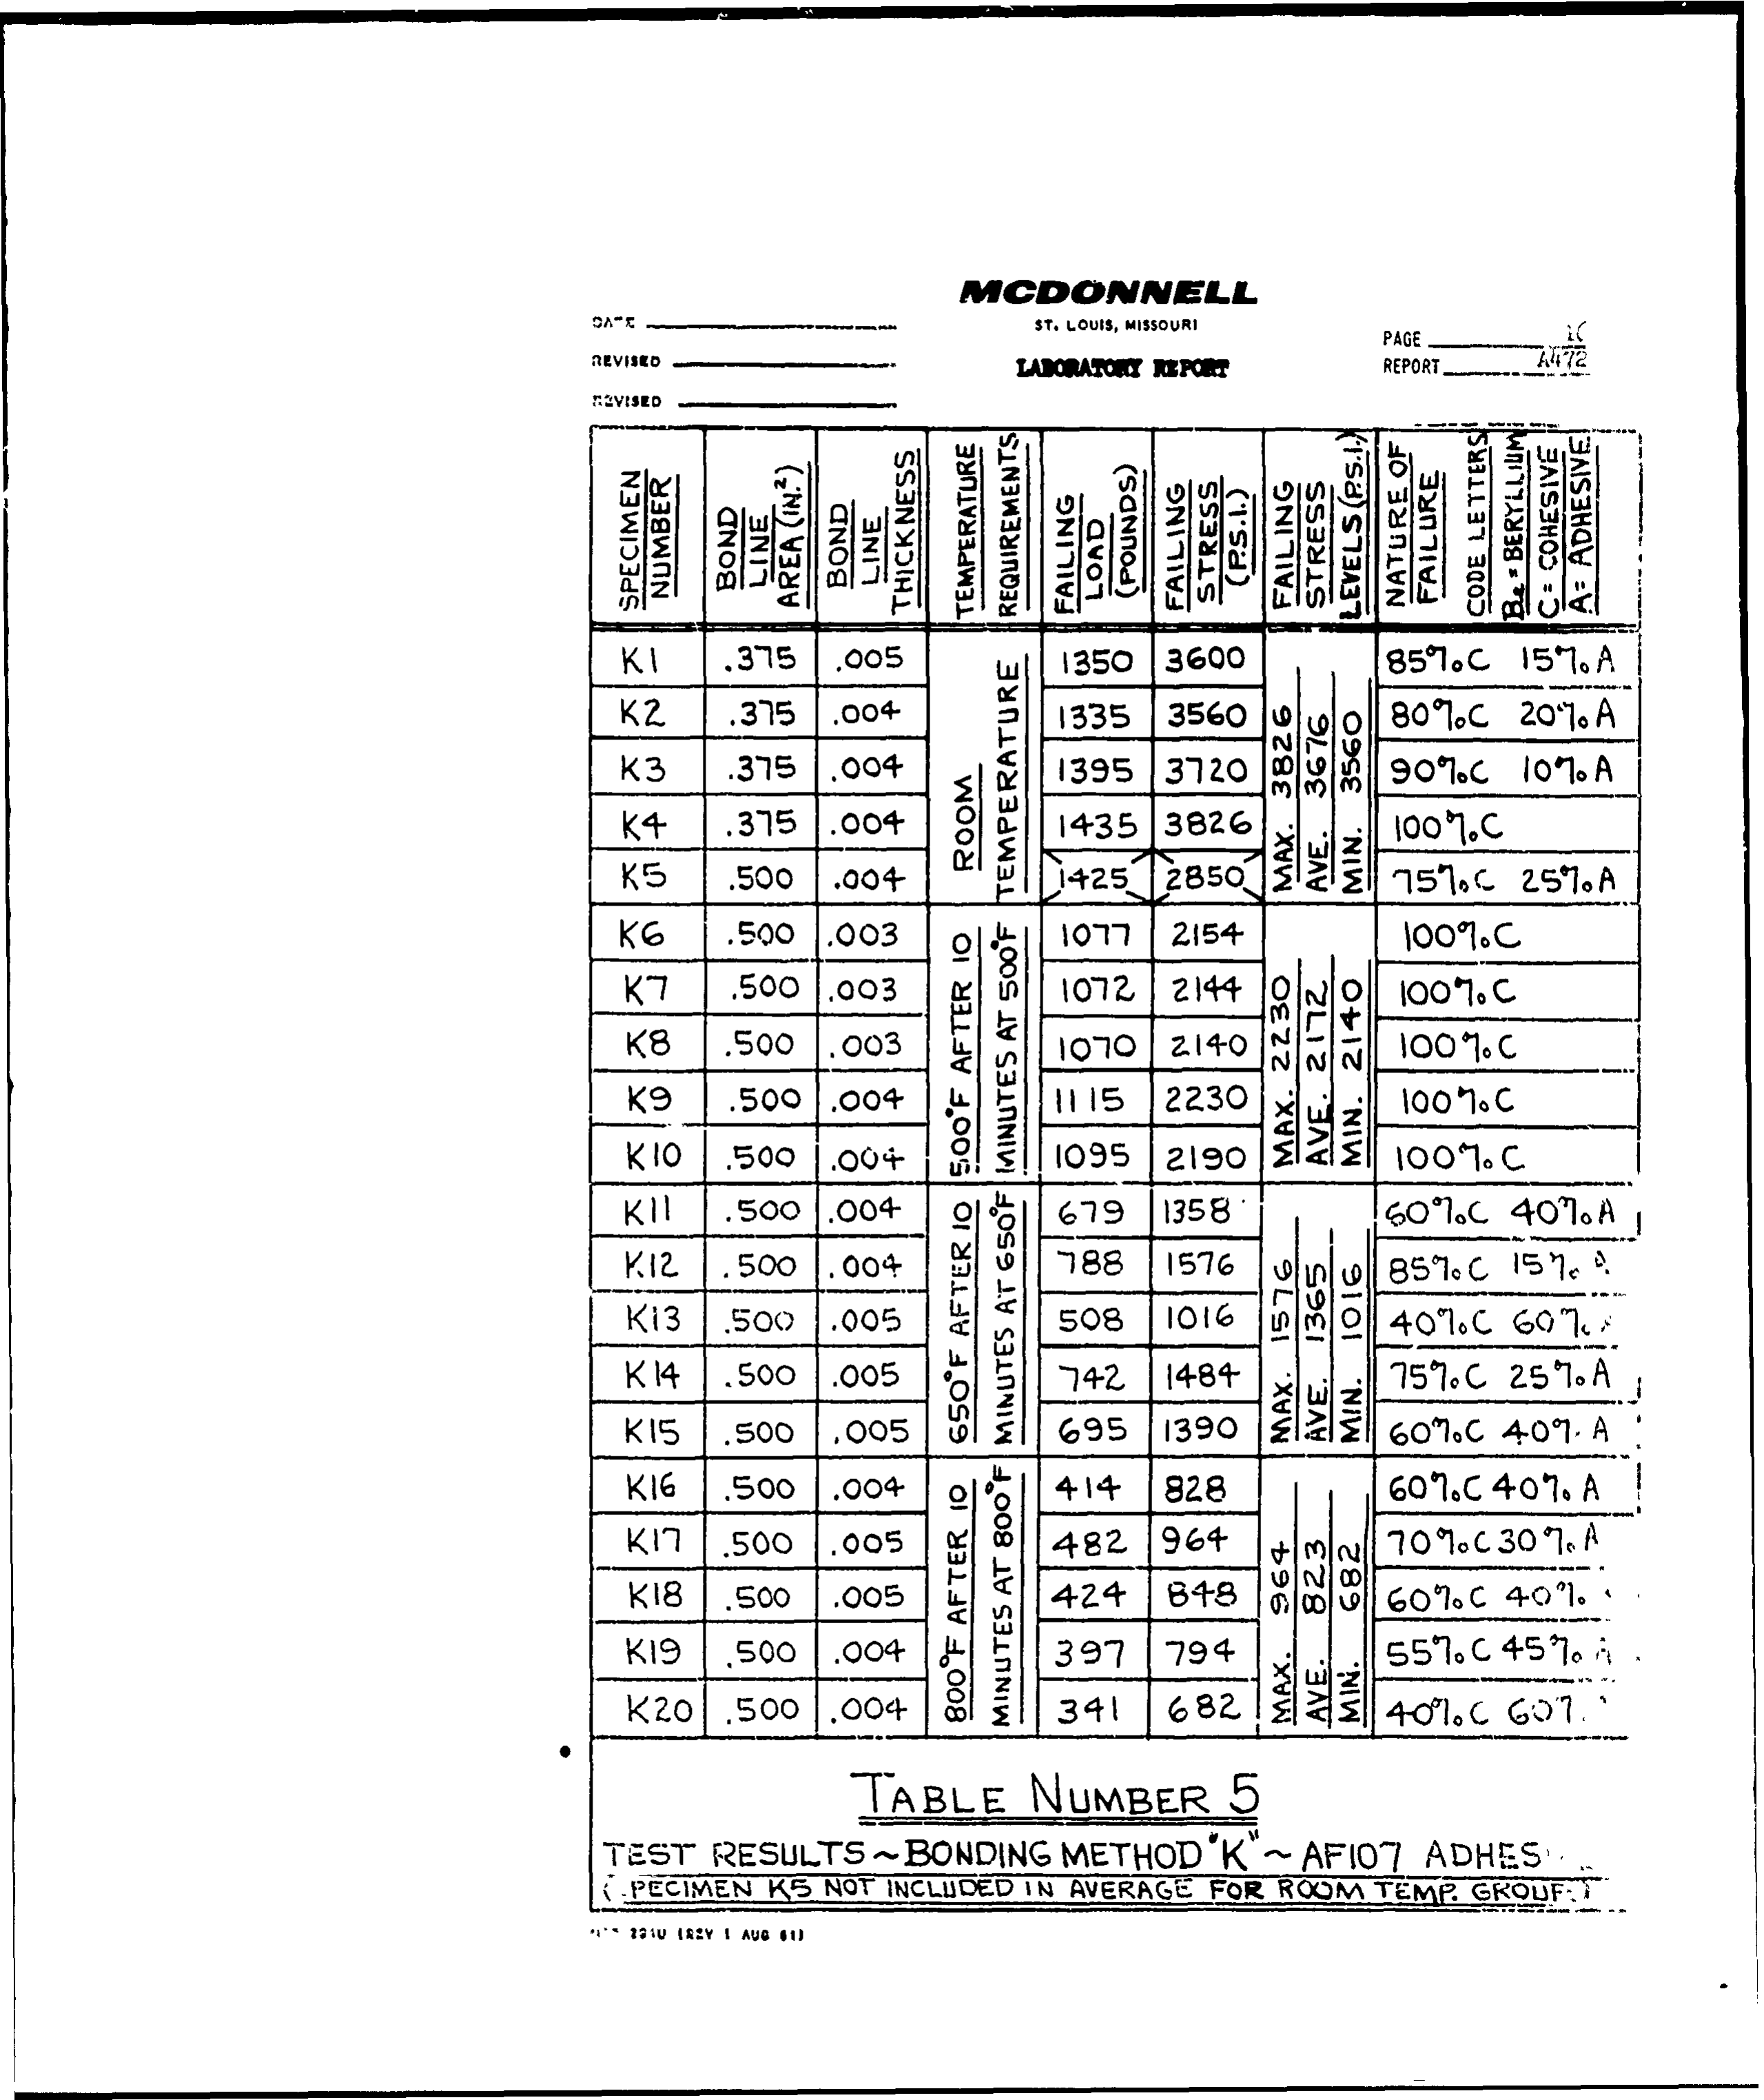 MCDONNELL
ST. LOUIS, MISSOURI
LABORATORY REPORT
DATE
REVISED
REVISED
PAGE
REPORT A472
SPECIMEN NUMBER
BOND LINE AREA (IN.²)
BOND LINE THICKNESS
TEMPERATURE REQUIREMENTS
FAILING LOAD (POUNDS)
FAILING STRESS (P.S.I.)
FAILING STRESS LEVELS (P.S.I.)
NATURE OF FAILURE
CODE LETTERS
Be = BERYLLIUM
C = COHESIVE
A = ADHESIVE
ROOM TEMPERATURE
MAX. 3826
AVE. 3676
MIN. 3560
K1 .375 .005 1350 3600 85%C 15%A
K2 .375 .004 1335 3560 80%C 20%A
K3 .375 .004 1395 3720 90%C 10%A
K4 .375 .004 1435 3826 100%C
K5 .500 .004 1425 2850 75%C 25%A
500°F AFTER 10 MINUTES AT 500°F
MAX. 2230
AVE. 2172
MIN. 2140
K6 .500 .003 1077 2154 100%C
K7 .500 .003 1072 2144 100%C
K8 .500 .003 1070 2140 100%C
K9 .500 .004 1115 2230 100%C
K10 .500 .004 1095 2190 100%C
650°F AFTER 10 MINUTES AT 650°F
MAX. 1576
AVE. 1365
MIN. 1016
K11 .500 .004 679 1358 60%C 40%A
K12 .500 .004 788 1576 85%C 15%
K13 .500 .005 508 1016 40%C 60%
K14 .500 .005 742 1484 75%C 25%A
K15 .500 .005 695 1390 60%C 40% A
800°F AFTER 10 MINUTES AT 800°F
MAX. 964
AVE. 823
MIN. 682
K16 .500 .004 414 828 60%C 40% A
K17 .500 .005 482 964 70%C 30%A
K18 .500 .005 424 848 60%C 40%
K19 .500 .004 397 794 55%C 45%
K20 .500 .004 341 682 40%C 60%
TABLE NUMBER 5
TEST RESULTS ~ BONDING METHOD "K" ~ AF107 ADHES
PECIMEN K5 NOT INCLUDED IN AVERAGE FOR ROOM TEMP. GROUP
(REV 1 AUG 61)